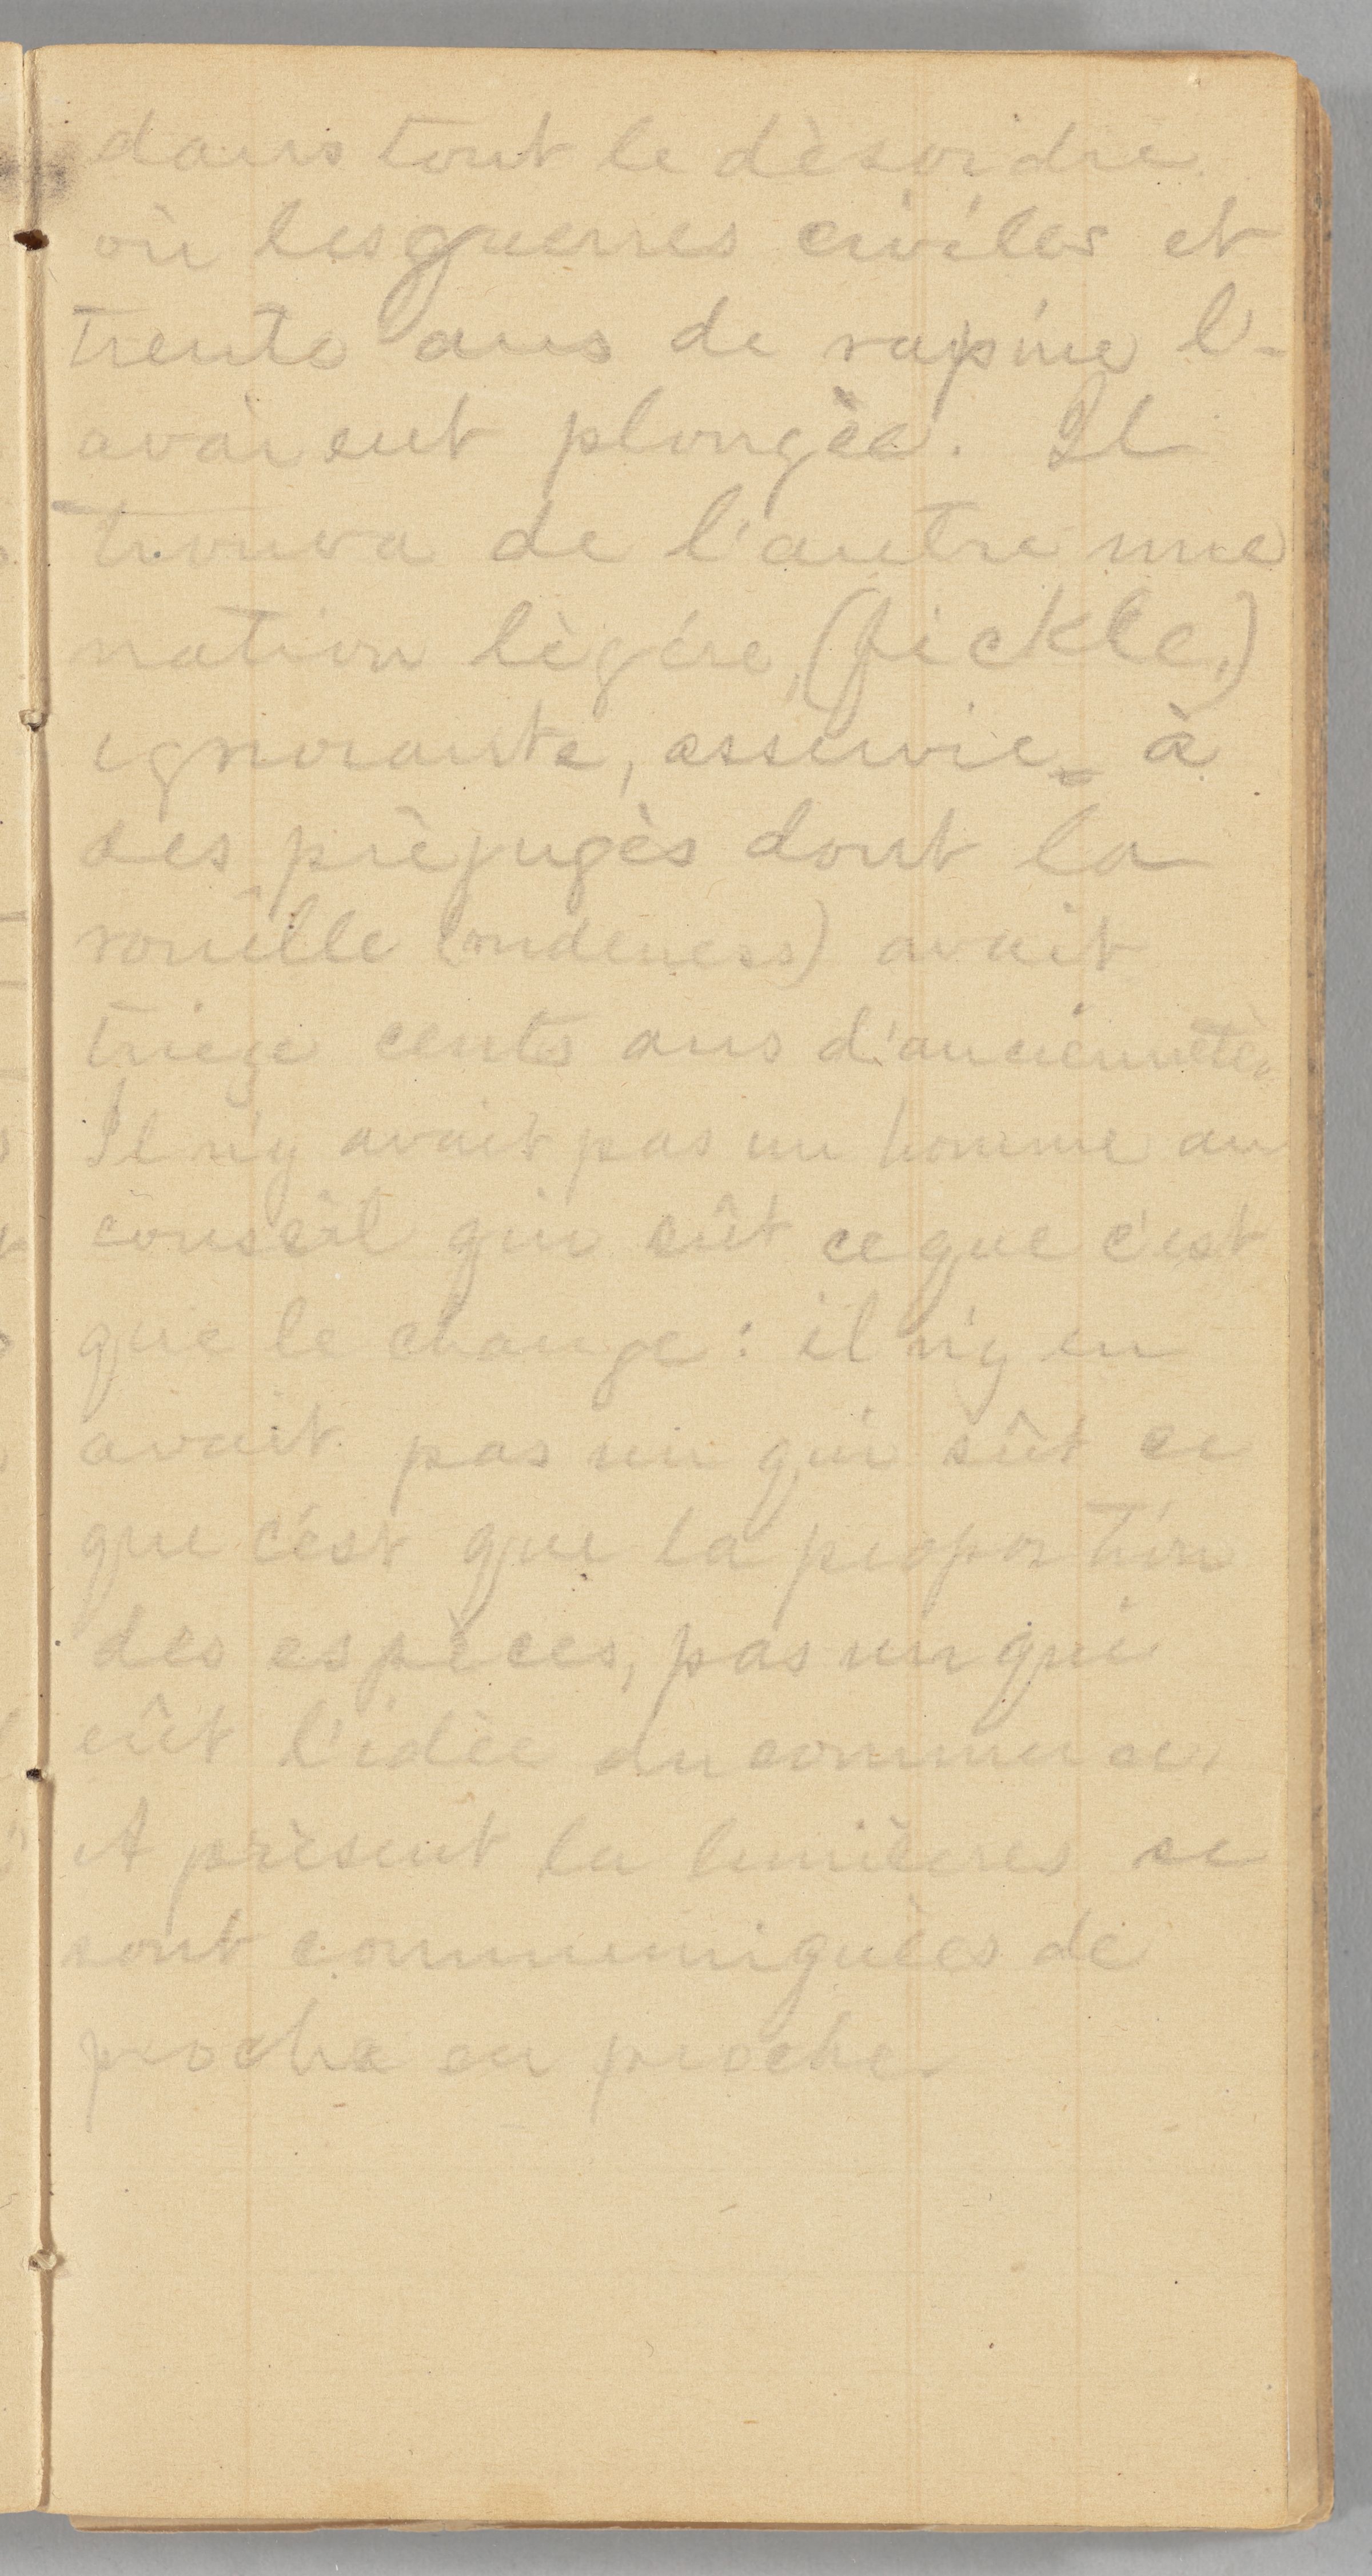 dans tout le dèsordre
où les guerres civiles et
trente ans de rapine l'-
avaient plongèe. Il
trouva de l'autre une
nation lègère, (fickle,)
ignorante, asservie à
des prèjugès dont la
rouille (rudeness) avait
trieze cents ans d'anciennetè.
Il n'y avait pas un homme au
conseil qui eût ce que c'est
que le change : il n'y en
avait pas un qui sût ce
que c'est que la proportion
des espèces, pas un qui
eût l'idèe du commerce.
A prèsent la lumières se
sont communiquèes de
proche en proche